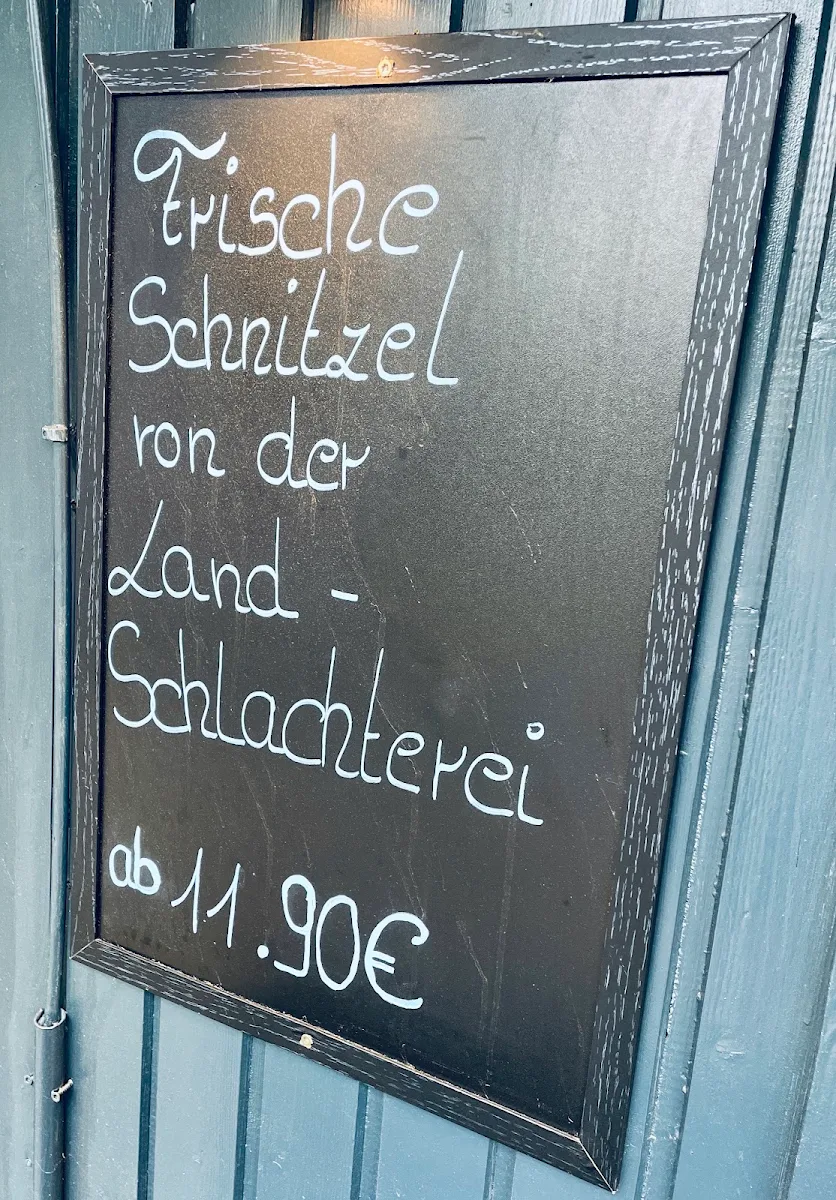 Frische
Schnitzel
von der
Land -
Schlachterei
ab 11.90€